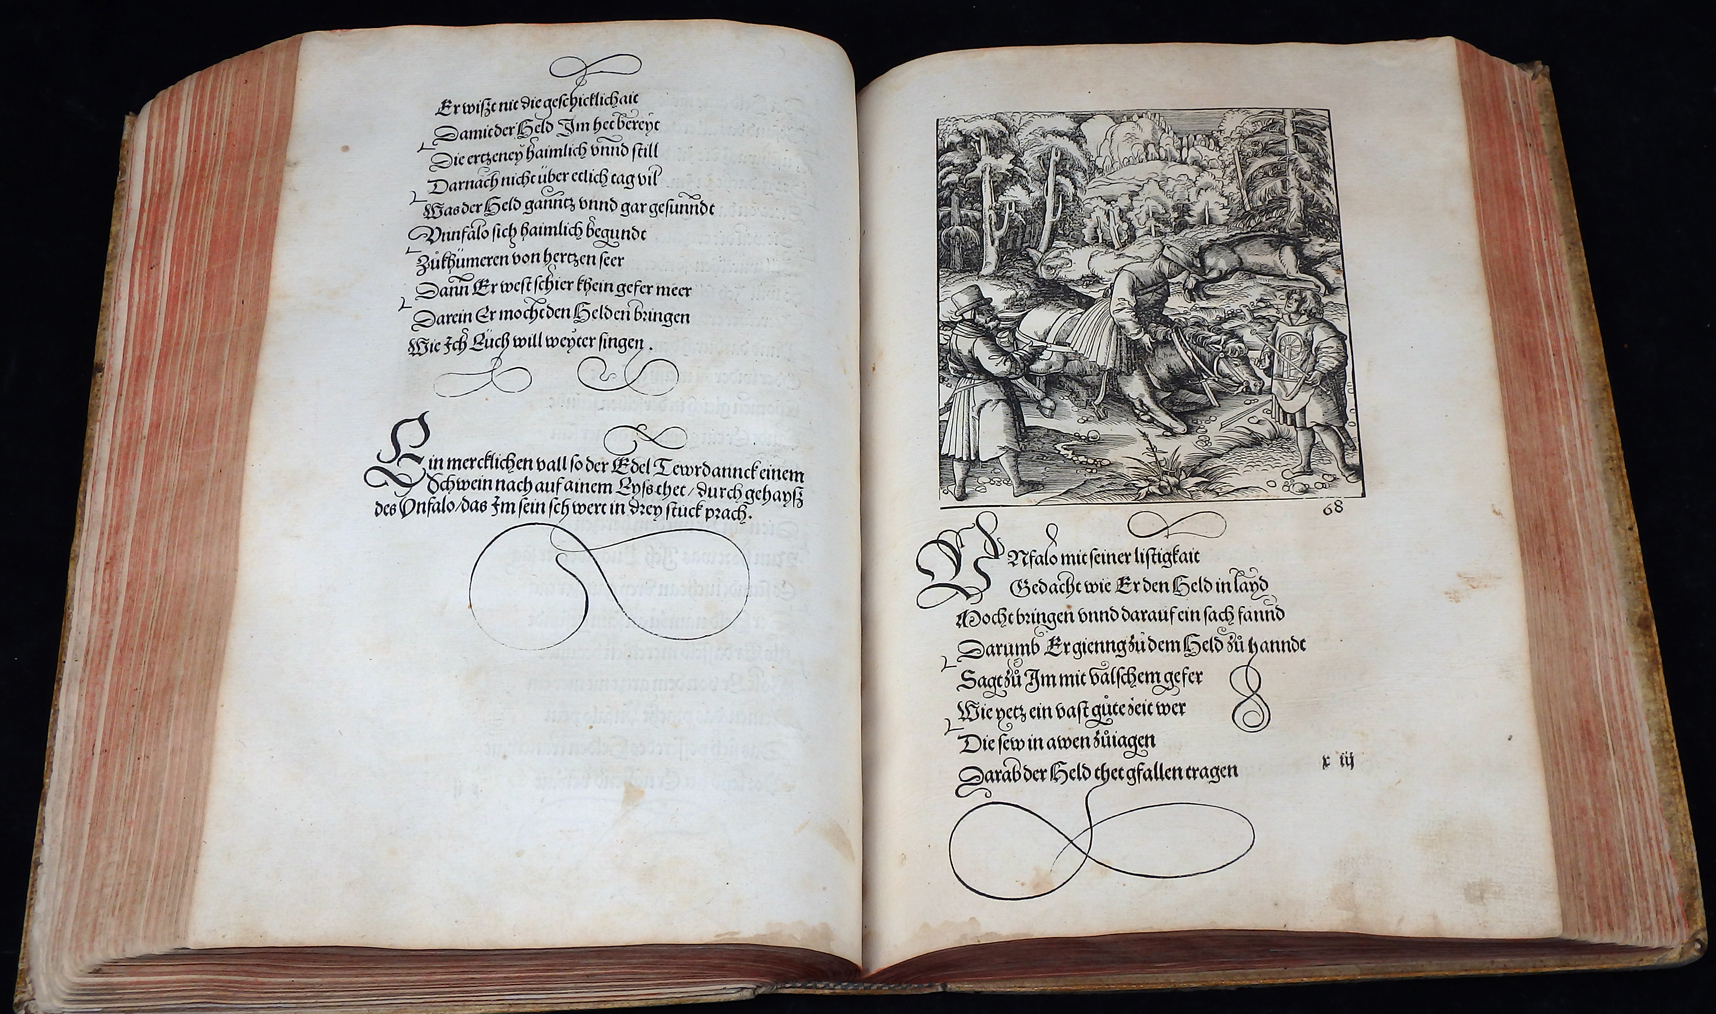 Er wißt nit die geschicklichait
Damit der Held Im het bereyt
Die ertzeney haimlich vnnd still
Darnach nicht über etlich tag vil
Was der Held ganntz vnnd gar gesunndt
Vnnfalo sich haimlich begundt
Zůkhümeren von hertzen seer
Dann Er west schier khein gefer meer
Darein Er mocht den Helden bringen
Wie Ich Eüch will weyter singen.
Ein mercklichen vall so der Edel Tewrdannck einem
Schwein nach auf ainem Eyss thet / durch gehayß
des Vnfalo / das Im sein schwert in drey stuck prach.
68
VNfalo mit seiner listigkait
Gedacht wie Er den Held in layd
Mocht bringen vnnd darauf ein sach fannd
Darumb Er gienng zů dem Held zů hanndt
Sagt zů Im mit valschem gefer
Wie yetz ein vast gůte zeit wer
Die sew in awen zůiagen
Darab der Held thet gfallen tragen
x iij